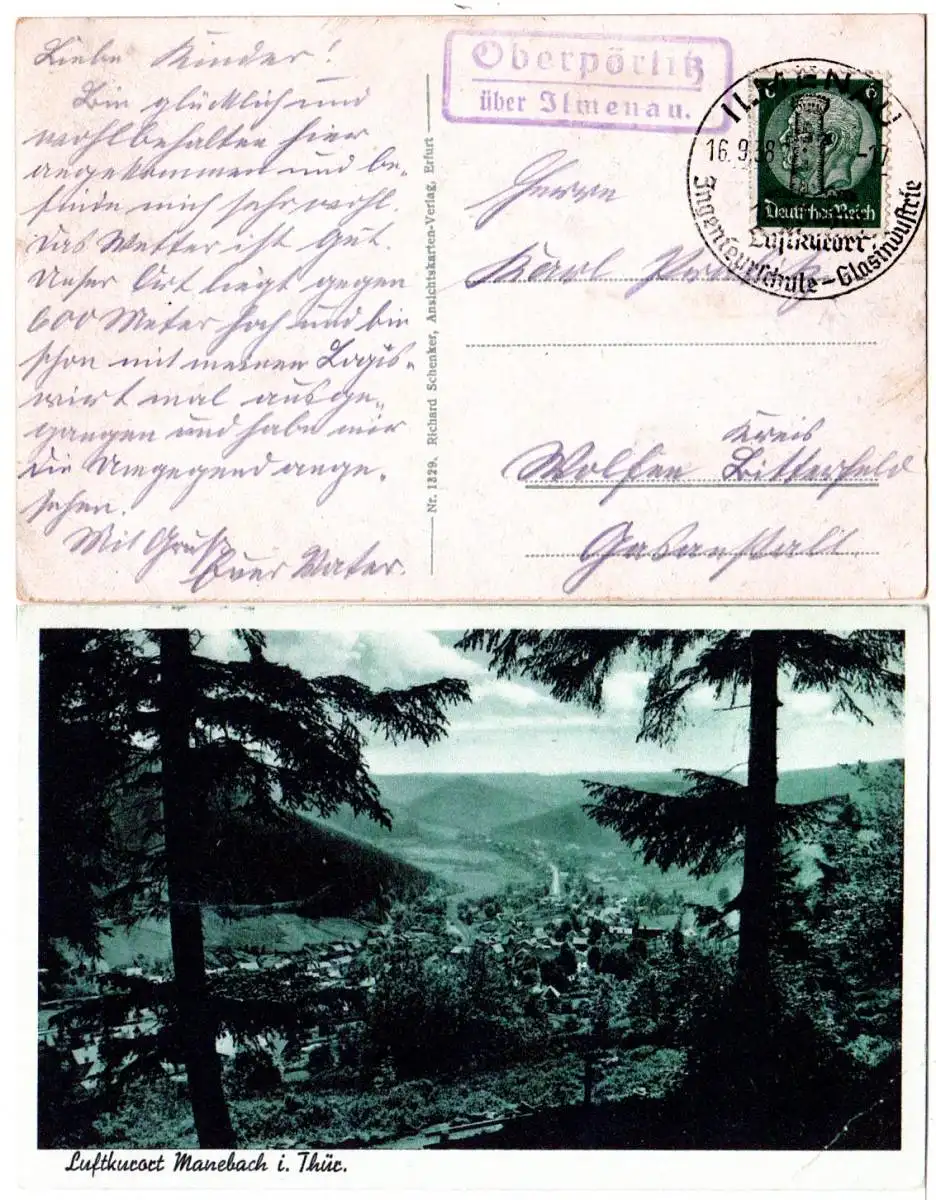 Liebe Kinder!
Bin glücklich und
wohlbehalten hier
angekommen und be-
finde mich sehr wohl.
Das Wetter ist Gut.
Unser Ort liegt gegen
600 Meter hoch und bin
schon mit meinen Logis-
wirt mal ausge-
gangen und habe mir
die Umgegend ange-
sehen.
Mit Gruß
Euer Vater.
Nr. 1329. Richard Schenker, Ansichtskarten-Verlag, Erfurt
Oberpörlitz
über Ilmenau.
ILMENAU
16.9.38
6
Deutsches Reich
Luftkurort
Ingenieurschule – Glasindustrie
Herrn
Karl
Kreis
Wolfen Bitterfeld
Gasanstalt.
Luftkurort Manebach i. Thür.